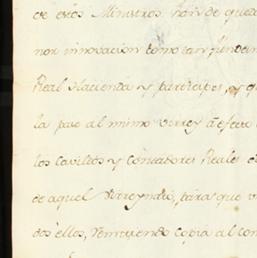 de estos Ministros han de queda
nor innovacion como tan
Real Hacienda y participes, y q
la pase al mismo virrey a efecto
los cavildos y Contadores Reales
de aquel virreynato, para que
dos ellos, remitiendo copia al con